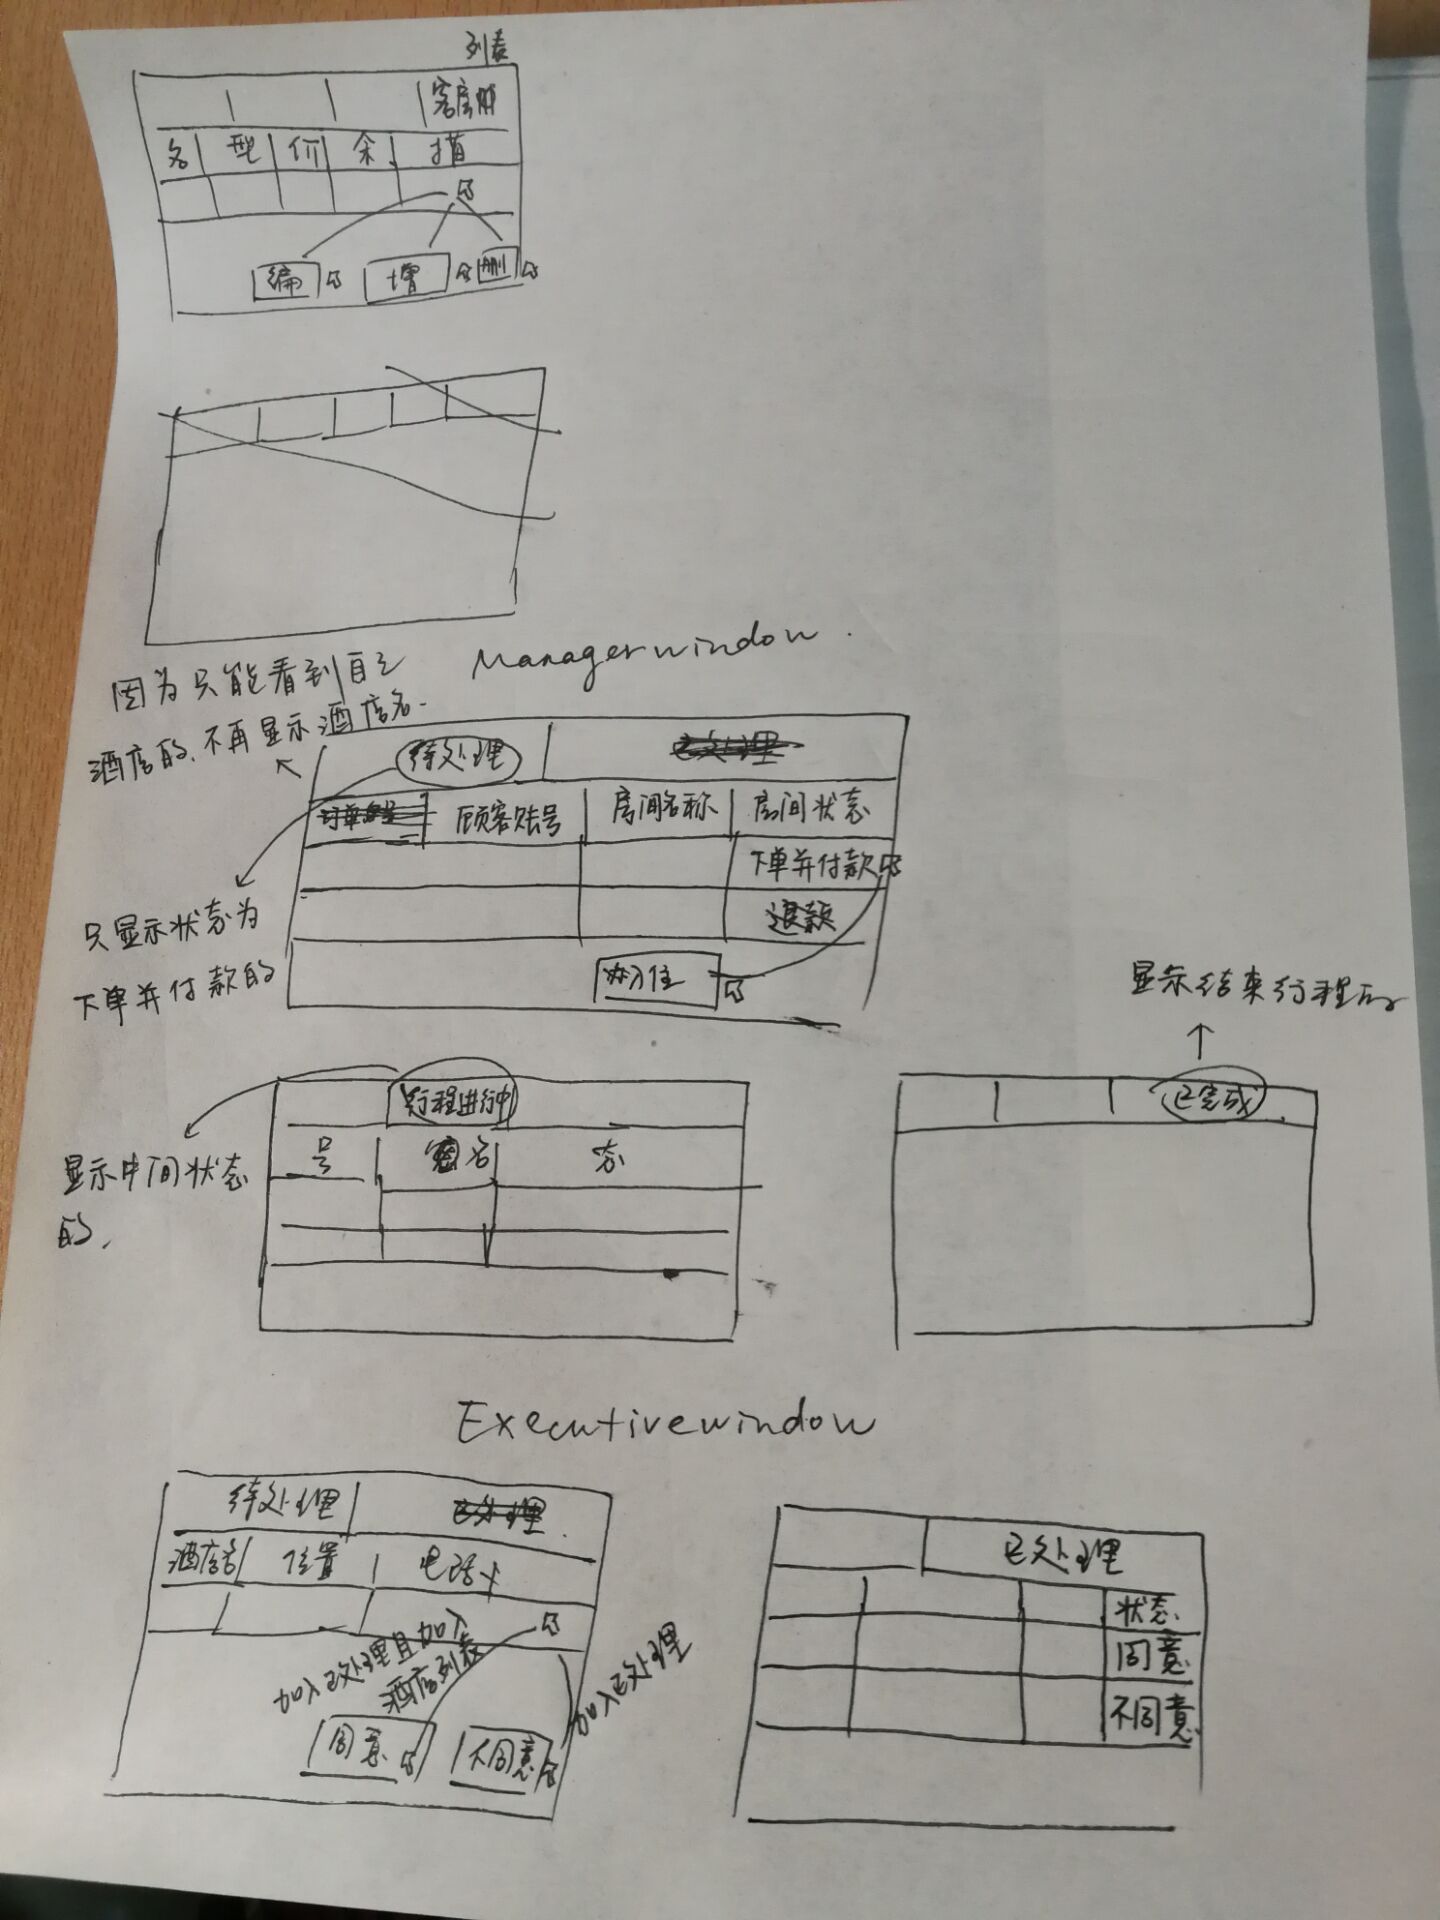 列表
客房
名 型 价 余 描
编 增 删
Managerwindow.
因为只能看到自己
酒店的、不再显示酒店名.
待处理
顾客账号 房间名称 房间状态
下单并付款
退款
办入住
只显示状态为
下单并付款的
显示结束行程的
行程进行中
号 名 态
显示中间状态
的,
已完成
Executivewindow
待处理 已处理
酒店名 位置 电话
加入已处理且加入
酒店列表
加入已处理
同意 不同意
已处理
状态
同意
不同意